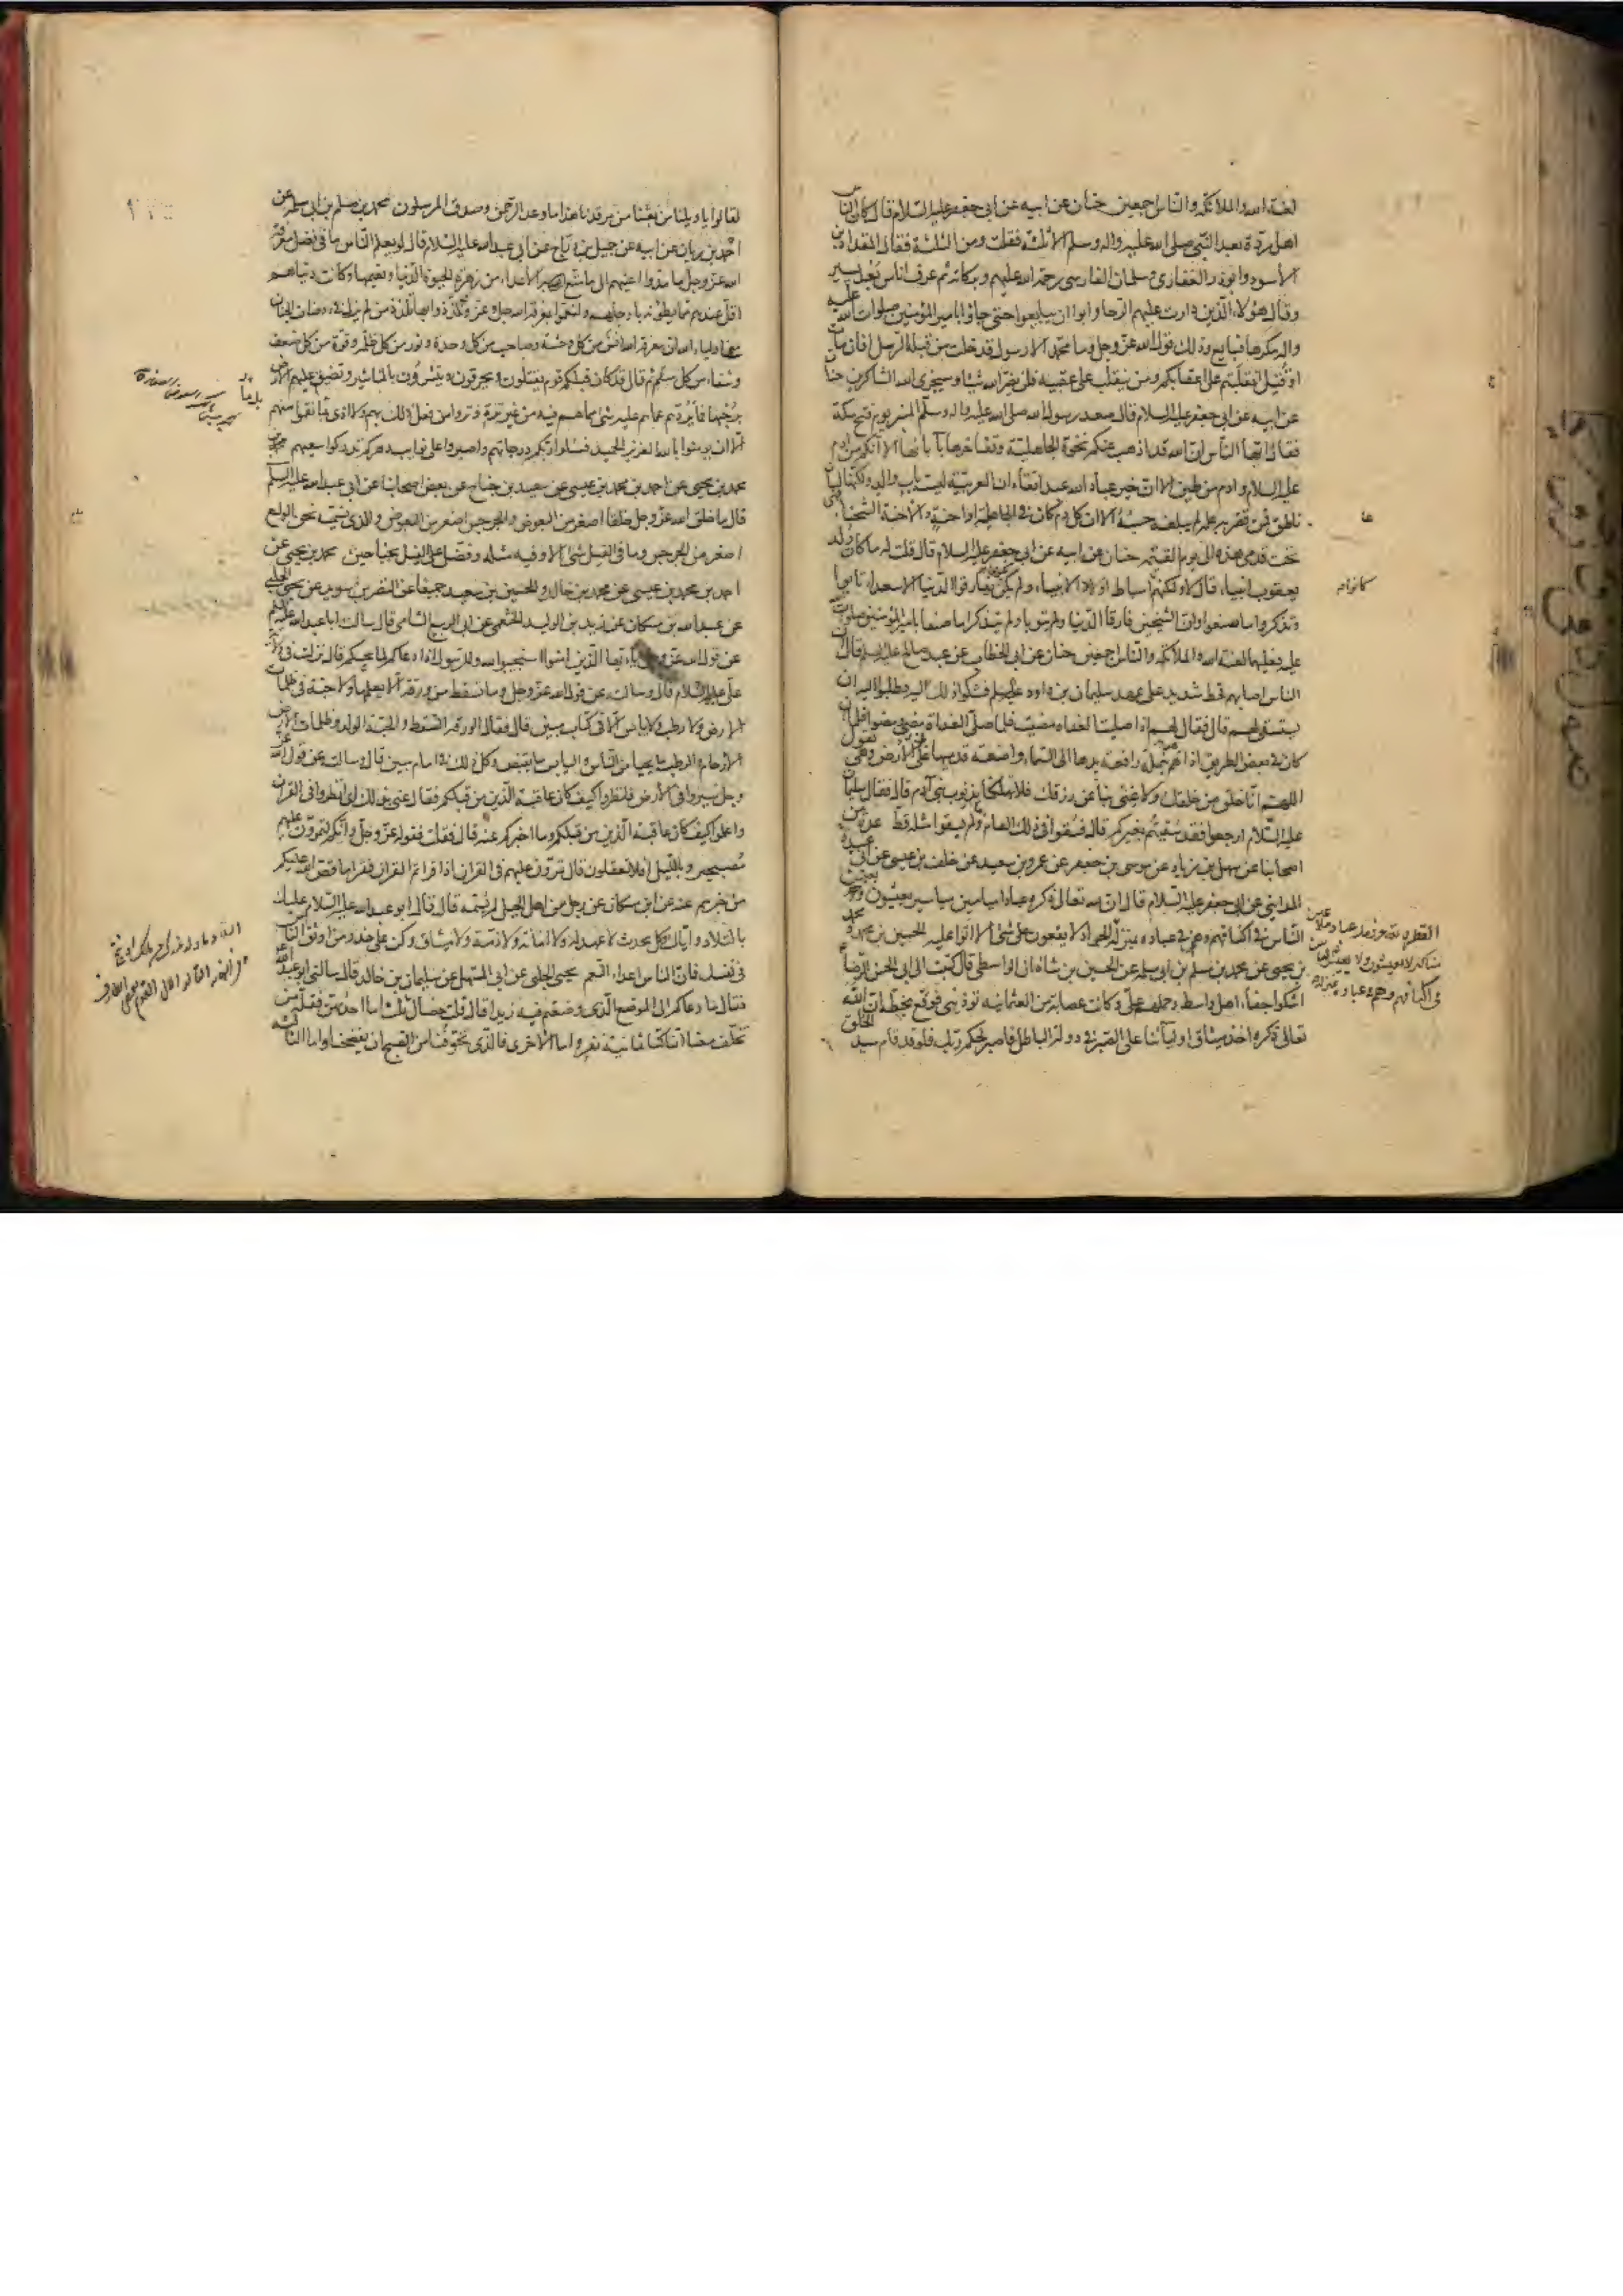 لعنة الله والملائكة والناس اجمعين حنان عن ابيه عن ابي جعفر عليه السلام قال كان الناس
اهل ردة بعد النبي صلى الله عليه واله وسلم الا ثلثة فقلت ومن الثلثة فقال المقداد بن
الأسود وابوذر الغفاري وسلمان الفارسي رحمة الله عليهم وبركاته ثم عرف اناس بعد يسير
وقال هؤلاء الذين دارت عليهم الرحا وابوا ان يبايعوا حتى جاؤا بامير المؤمنين صلوات الله عليه
واله مكرها فبايع وذلك قول الله عز وجل وما محمد الا رسول قد خلت من قبله الرسل افان مات
او قتل انقلبتم على اعقابكم ومن ينقلب على عقبيه فلن يضر الله شيئا وسيجزي الله الشاكرين حنان
عن ابيه عن ابي جعفر عليه السلام قال صعد رسول الله صلى الله عليه واله وسلم المنبر يوم فتح مكة
فقال ايها الناس ان الله قد اذهب عنكم نخوة الجاهلية وتفاخرها بآبائها الا انكم من ادم
عليه السلام وادم من طين الا ان خير عباد الله عبد اتقاه ان العربية ليست باب والد ولكنها لسان
ناطق فمن قصر به عمله لم يبلغه حسبه الا ان كل دم كان في الجاهلية او احنة والاحنة الشحناء فهي
تحت قدمي هذه الى يوم القيمة حنان عن ابيه عن ابي جعفر عليه السلام قال قلت له ما كان ولد
يعقوب انبياء قال لا ولكنهم اسباط اولاد الانبياء ولم يكن يفارقوا الدنيا الا سعداء تابوا
وتذكروا ما صنعوا وان الشيخين فارقا الدنيا ولم يتوبا ولم يتذكرا ما صنعا بامير المؤمنين صلوات
عليه فعليهما لعنة الله والملائكة والناس اجمعين حنان عن ابي الخطاب عن عبد صالح عليه السلم قال ان
الناس اصابهم قحط شديد على عهد سليمان بن داود عليهما السلم فشكوا ذلك اليه وطلبوا اليه ان
يستسقي لهم قال فقال لهم اذا صليت الغداة مضيت فلما صلى الغداة مضى ومضوا فلما ان
كان في بعض الطريق اذا هو بنملة رافعة يدها الى السماء واضعة قدميها على الارض وهي تقول
اللهم انا خلق من خلقك ولا غنى بنا عن رزقك فلا تهلكنا بذنوب بني آدم قال فقال سليمان
عليه السلام ارجعوا فقد سقيتم بغيركم قال فسقوا في ذلك العام ولم يسقوا مثله قط عدة من
اصحابنا عن سهل بن زياد عن موسى بن جعفر عن عمرو بن سعيد عن خلف بن عيسى عن ابي عبيدة
المدايني عن ابي جعفر عليه السلام قال ان لله تعالى ذكره عبادا ميامين مياسير يعيشون ويعيش
الناس في اكنافهم وهم في عباده بمنزلة
بن يحيى عن محمد بن سلم بن ابي سلمة عن الحسين بن شاذان الواسطي قال كتبت الى ابي الحسن الرضا
اشكوا جفاء اهل واسط وحملهم علي وكانت عصابة من العثمانية تؤذيني فوقع بخطه ان الله
تعالى ذكره اخذ ميثاق اوليائنا على الصبر في دولة الباطل فاصبر لحكم ربك فلو قد قام سيد الخلق
عا
كانوا
لقالوا يا ويلنا من بعثنا من مرقدنا هذا ما وعد الرحمن وصدق المرسلون محمد بن سلم بن ابي سلمة عن
احمد بن ريان عن ابيه عن جميل بن دراج عن ابي عبد الله عليه السلام قال لو يعلم الناس ما في فضل معرفة
الله عز وجل ما مدوا اعينهم الى ما متع الله به الأعداء من زهرة الحيوة الدنيا ونعيمها وكانت دنياهم
اقل عندهم مما يطؤنه بارجلهم ولنعموا بمعرفة الله جل وعز وتلذذوا بها تلذذ من لم يزل في روضات الجنان
مع اولياء الله ان معرفة الله انس من كل وحشة وصاحب من كل وحدة ونور من كل ظلمة وقوة من كل ضعف
وشفاء من كل سقم ثم قال قد كان قبلكم قوم يقتلون ويحرقون وينشرون بالمناشير وتضيق عليهم الارض
برحبها فما يردهم عما هم عليه شيء مما هم فيه من غير ترة وتروا من فعل ذلك بهم ولا اذى ما نقموا منهم
الا ان يؤمنوا بالله العزيز الحميد فسلوا ربكم درجاتهم واصبروا على نوايب دهركم تدركوا سعيهم
محمد بن يحيى عن احمد بن محمد بن عيسى عن سعيد بن جناح عن بعض اصحابنا عن ابي عبد الله عليه السلم
قال ما خلق الله عز وجل خلقا اصغر من البعوض والجرجس اصغر من البعوض والذي نسميه نحن الولع
اصغر من الجرجس وما في الفيل شيء الا وفيه مثله وفضل على الفيل بجناحين محمد بن يحيى عن
احمد بن محمد بن عيسى عن محمد بن خالد والحسين بن سعيد جميعا عن النضر بن سويد عن يحيى الحلبي
عن عبد الله بن مسكان عن زيد بن الوليد الخثعمي عن ابي الربيع الشامي قال سالت ابا عبد الله عليه السلم
عن قول الله عز وجل يا ايها الذين امنوا استجيبوا لله وللرسول اذا دعاكم لما يحييكم قال نزلت في ولاية
علي عليه السلام قال وسالته عن قول الله عز وجل وما تسقط من ورقة الا يعلمها ولا حبة في ظلمات
الارض ولا رطب ولا يابس الا في كتاب مبين قال فقال الورقة السقط والحبة الولد وظلمات الارض
الارحام والرطب ما يحيا من الناس واليابس ما يقبض وكل ذلك في امام مبين قال وسالته عن قول الله عز
وجل سيروا في الارض فانظروا كيف كان عاقبة الذين من قبلكم فقال عنى بذلك اي انظروا في القران
واعلموا كيف كان عاقبة الذين من قبلكم وما اخبركم عنه قال فقلت فقوله عز وجل وانكم لتمرون عليهم
مصبحين وبالليل افلا تعقلون قال تمرون عليهم في القران اذا قراتم القران فقرا ما قص الله عليكم
من خبرهم عنه عن ابن مسكان عن رجل من اهل الجبل لم يسمه قال قال ابو عبد الله عليه السلام عليك
بالتلاد واياك وكل محدث لا عهد له ولا امانة ولا ذمة ولا ميثاق وكن على حذر من اوثق الناس
في نفسك فان الناس اعداء النعم يحيى الحلبي عن ابي المستهل عن سليمان بن خالد قال سالني ابو عبد الله
فقال ما دعاكم الى الموضع الذي وضعتم فيه زيدا قال قلت خصال ثلث اما احديهن فقلة من
تخلف معنا انما كنا ثمانية نفر واما الاخرى فالذي تخوفنا من الصبح ان يفضحنا واما الثالثة